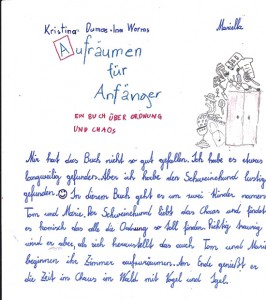 Kristina Dumas · Ina Worms Mariella
Aufräumen
für
Anfänger
EIN BUCH ÜBER ORDNUNG
UND CHAOS
Mir hat das Buch nicht so gut gefallen. Ich habe es etwas
langweilig gefunden. Aber ich habe den Schweinehund lustig
gefunden. In diesem Buch geht es um zwei Kinder namens
Tom und Marie. Der Schweinehund liebt das Chaos und findet
es komisch das alle die Ordnung so toll finden. Richtig traurig
wird er aber, als sich herausstellt das auch Tom und Marie
beginnen ihr Zimmer aufzuräumen. Am Ende genießt er
die Zeit im Chaos im Wald mit Vogel und Igel.